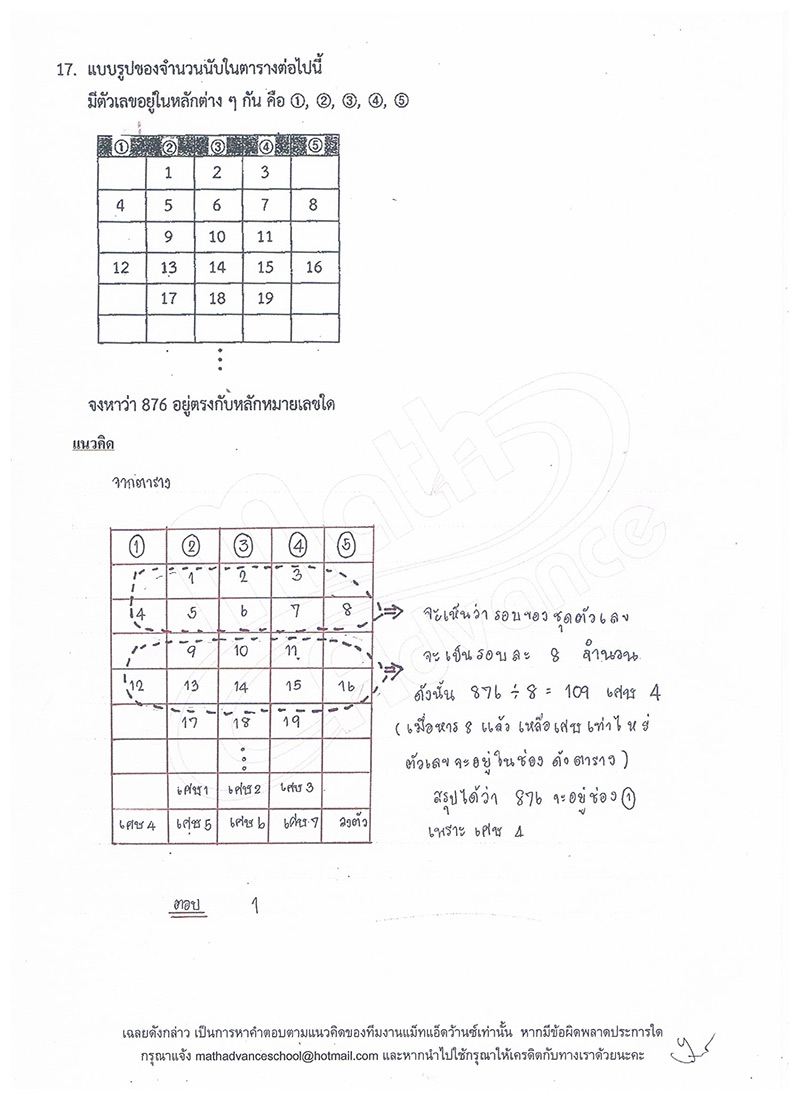 17. แบบรูปของจำนวนนับในตารางต่อไปนี้
มีตัวเลขอยู่ในหลักต่าง ๆ กัน คือ ①, ②, ③, ④, ⑤
① ② ③ ④ ⑤
1 2 3
4 5 6 7 8
9 10 11
12 13 14 15 16
17 18 19
จงหาว่า 876 อยู่ตรงกับหลักหมายเลขใด
แนวคิด
จากตาราง
① ② ③ ④ ⑤
1 2 3
4 5 6 7 8
9 10 11
12 13 14 15 16
17 18 19
เศษ 1 เศษ 2 เศษ 3
เศษ 4 เศษ 5 เศษ 6 เศษ 7 ลงตัว
⇒ จะเห็นว่า รอบของชุดตัวเลข
⇒ จะเป็นรอบละ 8 จำนวน
ดังนั้น 876 ÷ 8 = 109 เศษ 4
( เมื่อหาร 8 แล้ว เหลือเศษเท่าไหร่
ตัวเลขจะอยู่ในช่อง ดังตาราง )
สรุปได้ว่า 876 จะอยู่ช่อง ①
เพราะ เศษ 4
ตอบ 1
Math Advance
เฉลยดังกล่าว เป็นการหาคำตอบตามแนวคิดของทีมงานแม็ทแอ็ดว้านซ์เท่านั้น หากมีข้อผิดพลาดประการใด
กรุณาแจ้ง mathadvanceschool@hotmail.com และหากนำไปใช้กรุณาให้เครดิตกับทางเราด้วยนะคะ